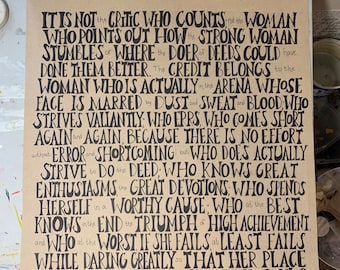 IT IS NOT the CRITIC WHO COUNTS not the WOMAN
WHO POINTS OUT HOW the STRONG WOMAN
STUMBLES or WHERE the DOER of DEEDS COULD have
DONE THEM BETTER. The CREDIT BELONGS to the
WOMAN WHO IS ACTUALLY in the ARENA WHOSE
FACE IS MARRED by DUST and SWEAT and BLOOD WHO
STRIVES VALIANTLY WHO ERRS WHO COMES SHORT
AGAIN and AGAIN, BECAUSE THERE IS NO EFFORT
without ERROR and SHORTCOMING but WHO DOES ACTUALLY
STRIVE to DO the DEED; WHO KNOWS GREAT
ENTHUSIASMS the GREAT DEVOTIONS WHO SPENDS
HERSELF in a WORTHY CAUSE; WHO at the BEST
KNOWS in the END the TRIUMPH of HIGH ACHIEVEMENT,
and WHO at the WORST IF SHE FAILS at LEAST FAILS
WHILE DARING GREATLY so THAT HER PLACE